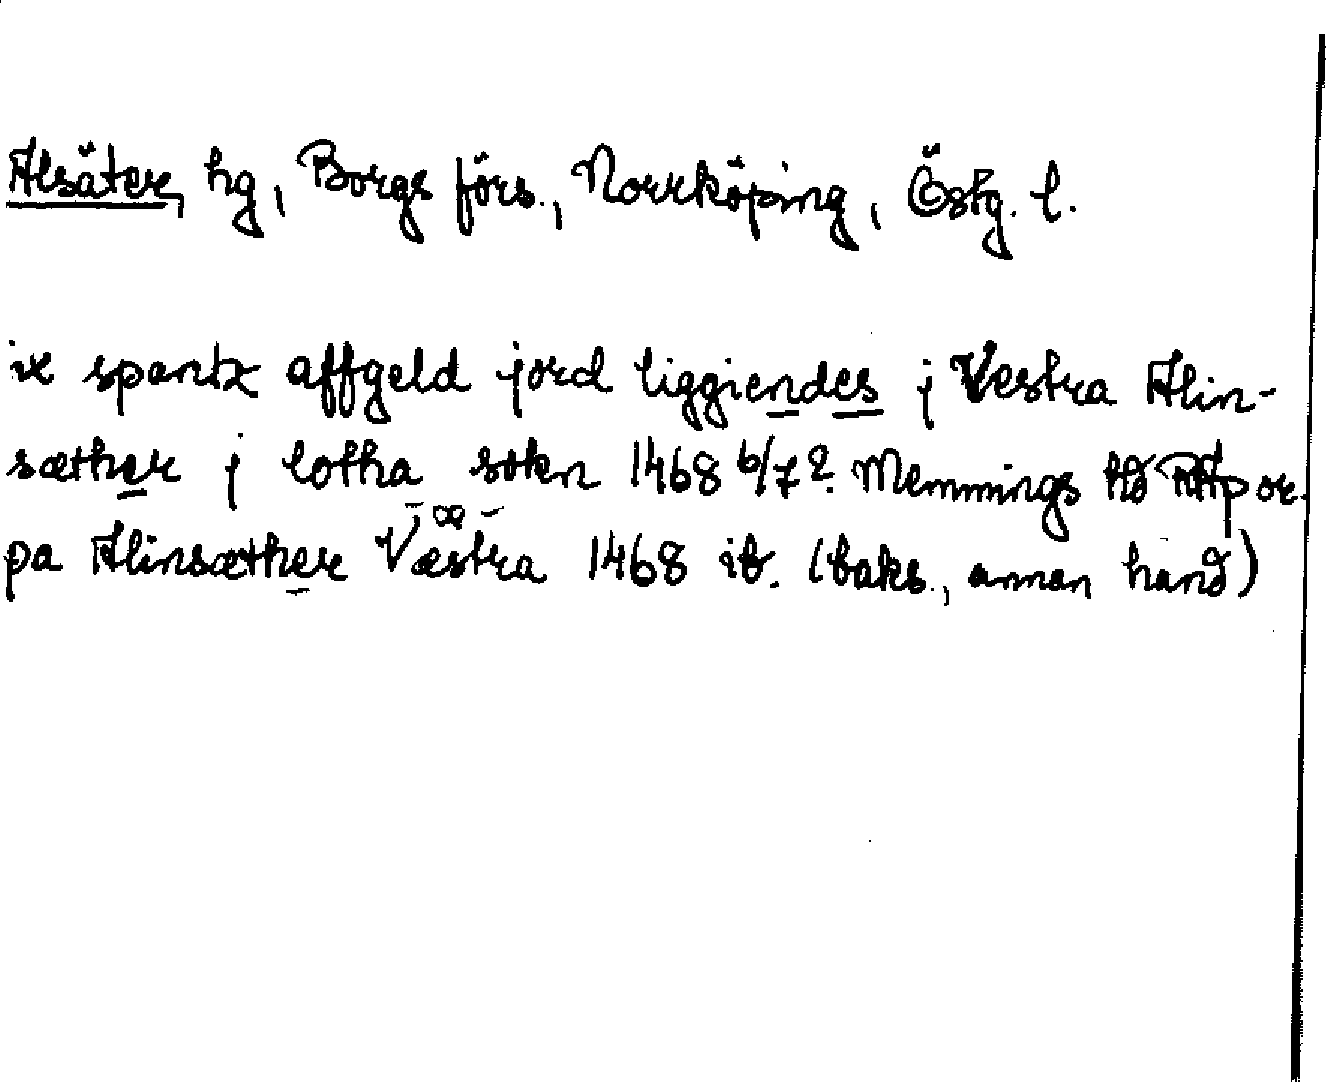 Alsäter, hg, Borgs förs., Norrköping, Östg. l.
ix spantz affgeld jord liggiendes j Vestra Alin-
sæther j loftha sokn 1468 6/7? Memmings hd RAp or.
pa Alinsæther Væstra 1468 ib. (baks., annan hand)